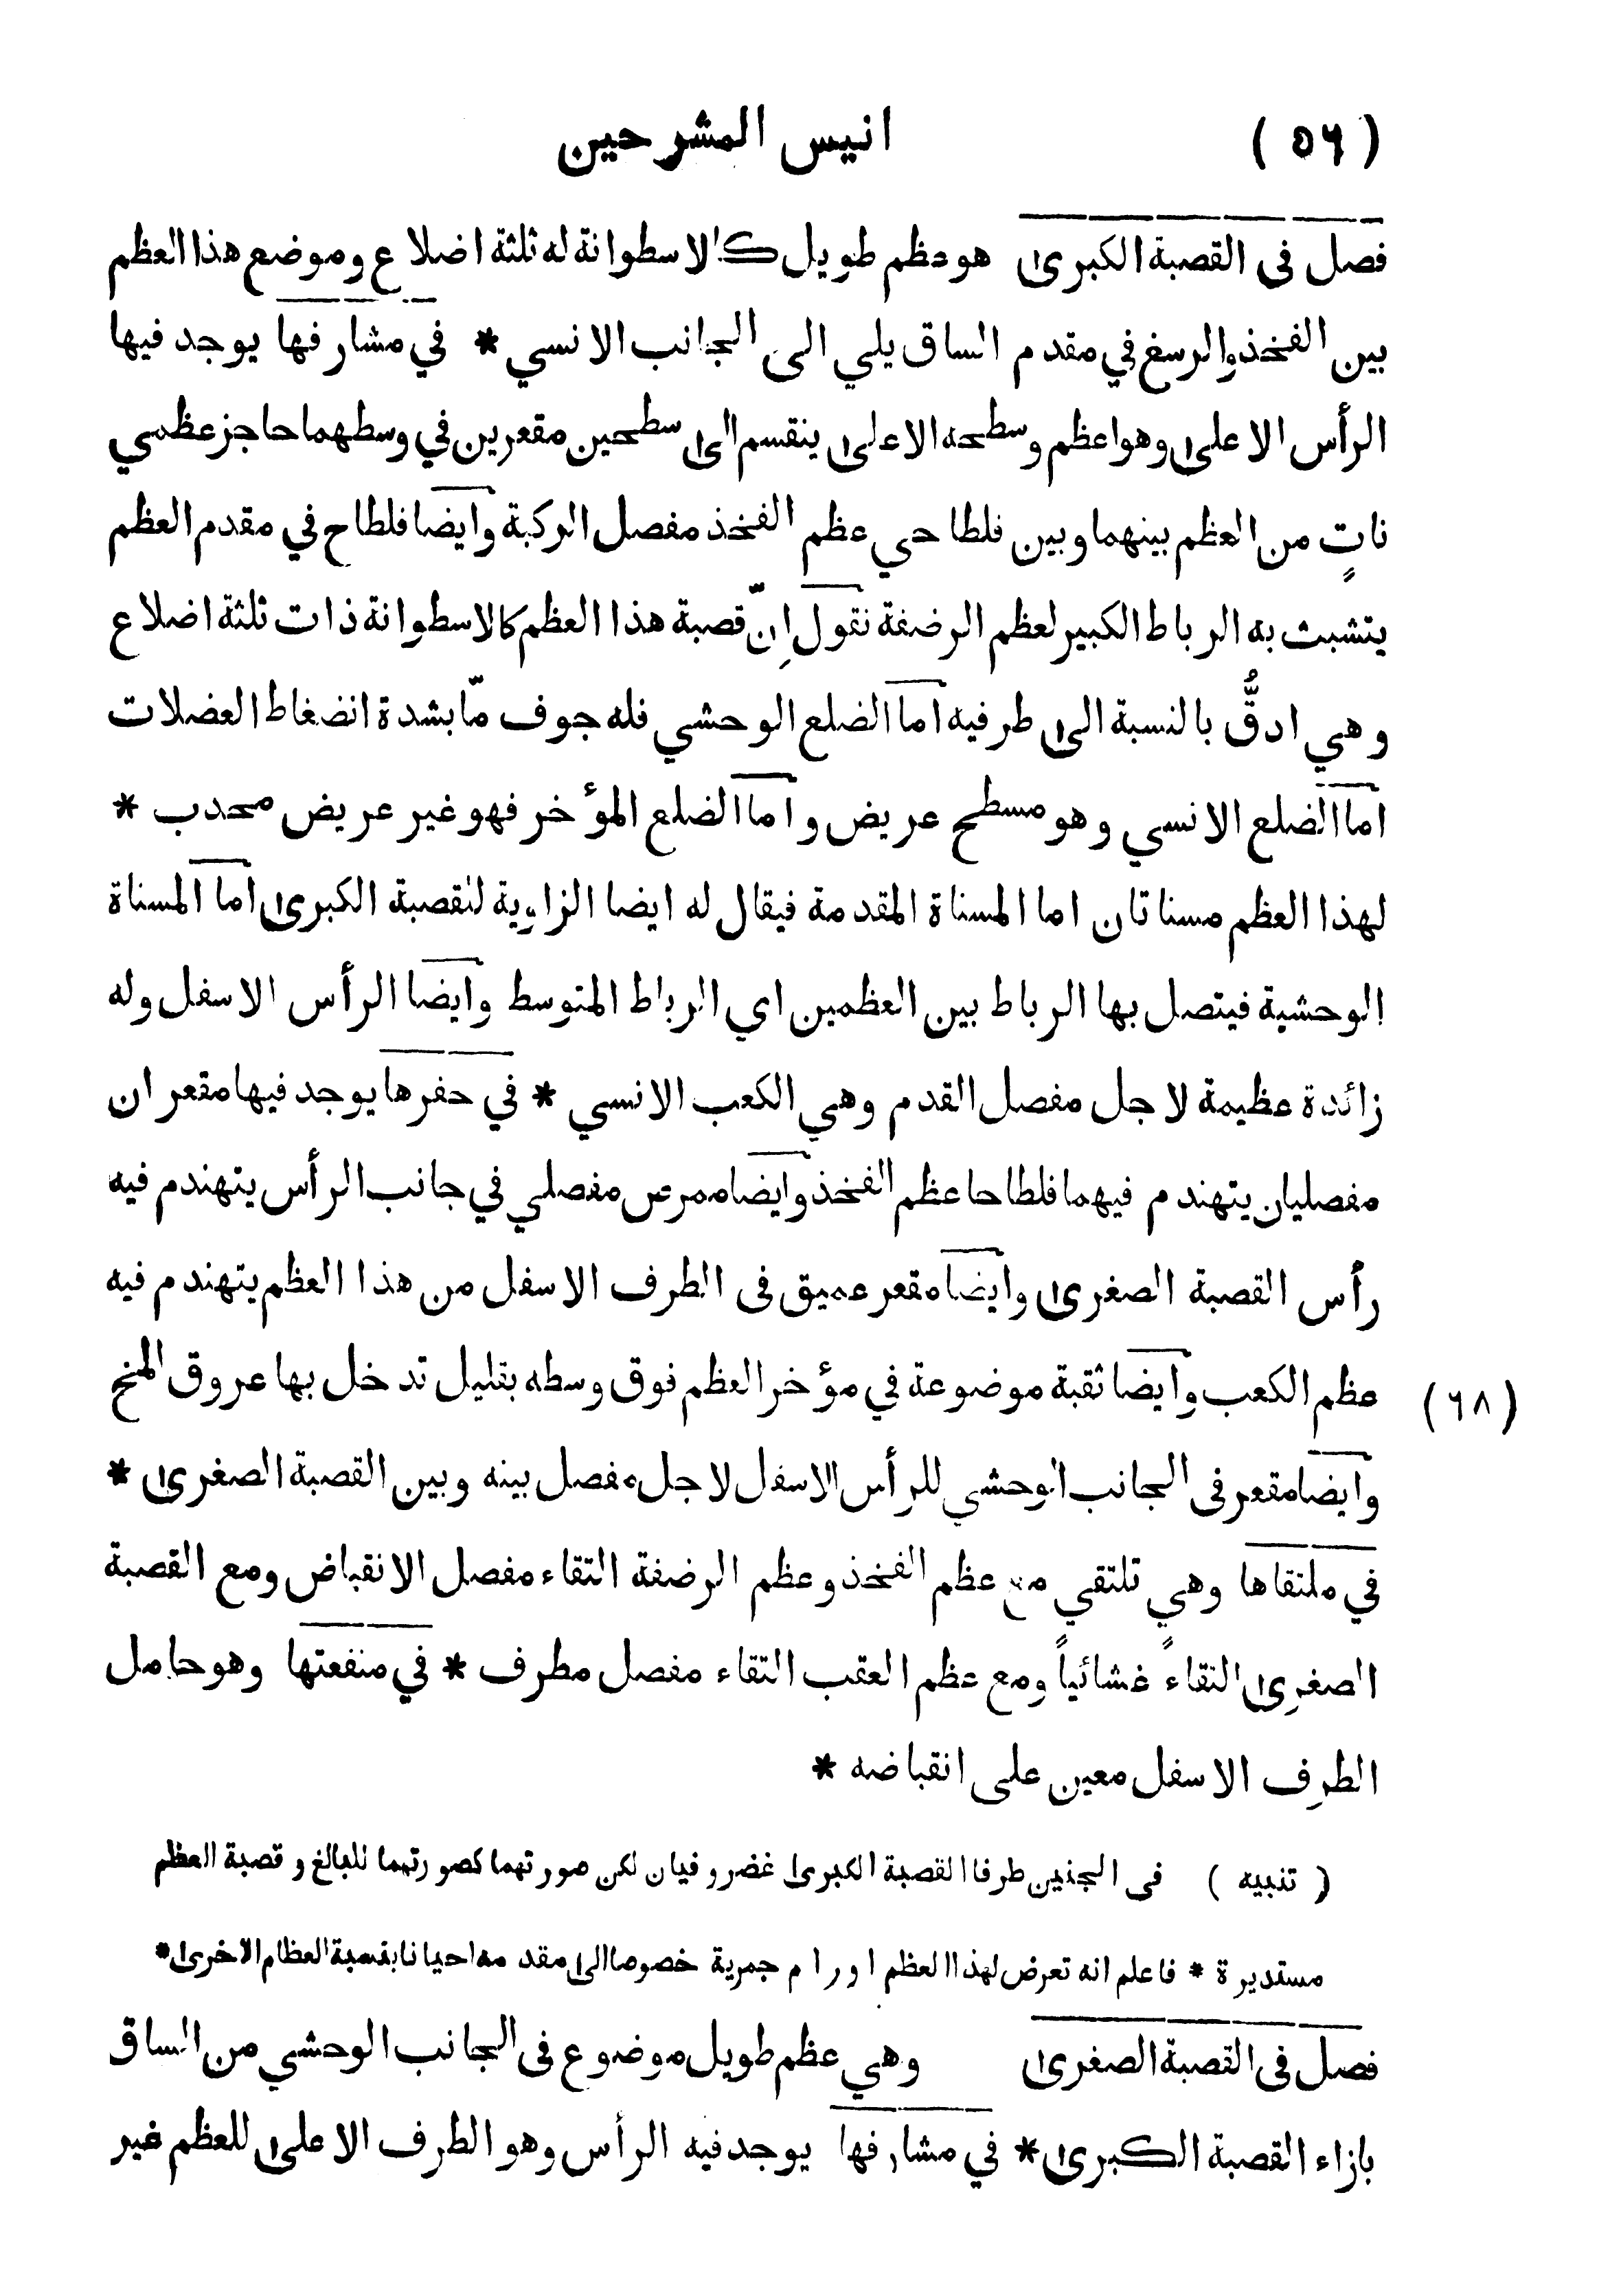 (٥٦) انيس المشرحين
فصل فى القصبة الكبرىٰ هو عظم طويل كالاسطوانة له ثلثة اضلاع وموضع هذا العظم
بين الفخذ والرسغ في مقدم الساق يلي الى الجانب الانسي * في مشارفها يوجد فيها
الرأس الاعلىٰ وهو اعظم وسطحه الاعلىٰ ينقسم الىٰ سطحين مقعرين في وسطهما حاجز عظمي
ناتٍ من العظم بينهما وبين فلطاحي عظم الفخذ مفصل الركبة وايضا فلطاح في مقدم العظم
يتشبث به الرباط الكبير لعظم الرضفة نقول اِنّ قصبة هذا العظم كالاسطوانة ذات ثلثة اضلاع
وهي ادقُّ بالنسبة الىٰ طرفيه اما الضلع الوحشي فله جوف مّا بشدة انضغاط العضلات
اما الضلع الانسي وهو مسطح عريض واما الضلع المؤخر فهو غير عريض محدب *
لهذا العظم مسناتان اما المسناة المقدمة فيقال له ايضا الزاوية للقصبة الكبرىٰ اما المسناة
الوحشية فيتصل بها الرباط بين العظمين اي الرباط المتوسط وايضا الرأس الاسفل وله
زائدة عظيمة لاجل مفصل القدم وهي الكعب الانسي * في حفرها يوجد فيها مقعران
مفصليان يتهندم فيهما فلطاحا عظم الفخذ وايضا ممرس مفصلي في جانب الرأس يتهندم فيه
رأس القصبة الصغرىٰ وايضا مقعر عميق فى الطرف الاسفل من هذا العظم يتهندم فيه
عظم الكعب وايضا ثقبة موضوعة في مؤخر العظم فوق وسطه بقليل تدخل بها عروق المخ
(٦٨)
وايضا مقعر فى الجانب الوحشي للرأس الاسفل لاجل مفصل بينه وبين القصبة الصغرىٰ *
في ملتقاها وهي تلتقي مع عظم الفخذ وعظم الرضفة التقاء مفصل الانقباض ومع القصبة
الصغرىٰ التقاءً غشائياً ومع عظم العقب التقاء مفصل مطرف * في منفعتها وهو حامل
الطرف الاسفل معين على انقباضه *
(تنبيه) فى الجنين طرفا القصبة الكبرىٰ غضروفيان لكن صورتهما كصورتهما للبالغ وقصبة العظم
مستديرة * فاعلم انه تعرض لهذا العظم اورام جمرية خصوصا الىٰ مقدمه احيانا بنسبة العظام الاخرىٰ *
فصل فى القصبة الصغرىٰ وهي عظم طويل موضوع فى الجانب الوحشي من الساق
بازاء القصبة الكبرىٰ * في مشارفها يوجد فيه الرأس وهو الطرف الاعلىٰ للعظم غير